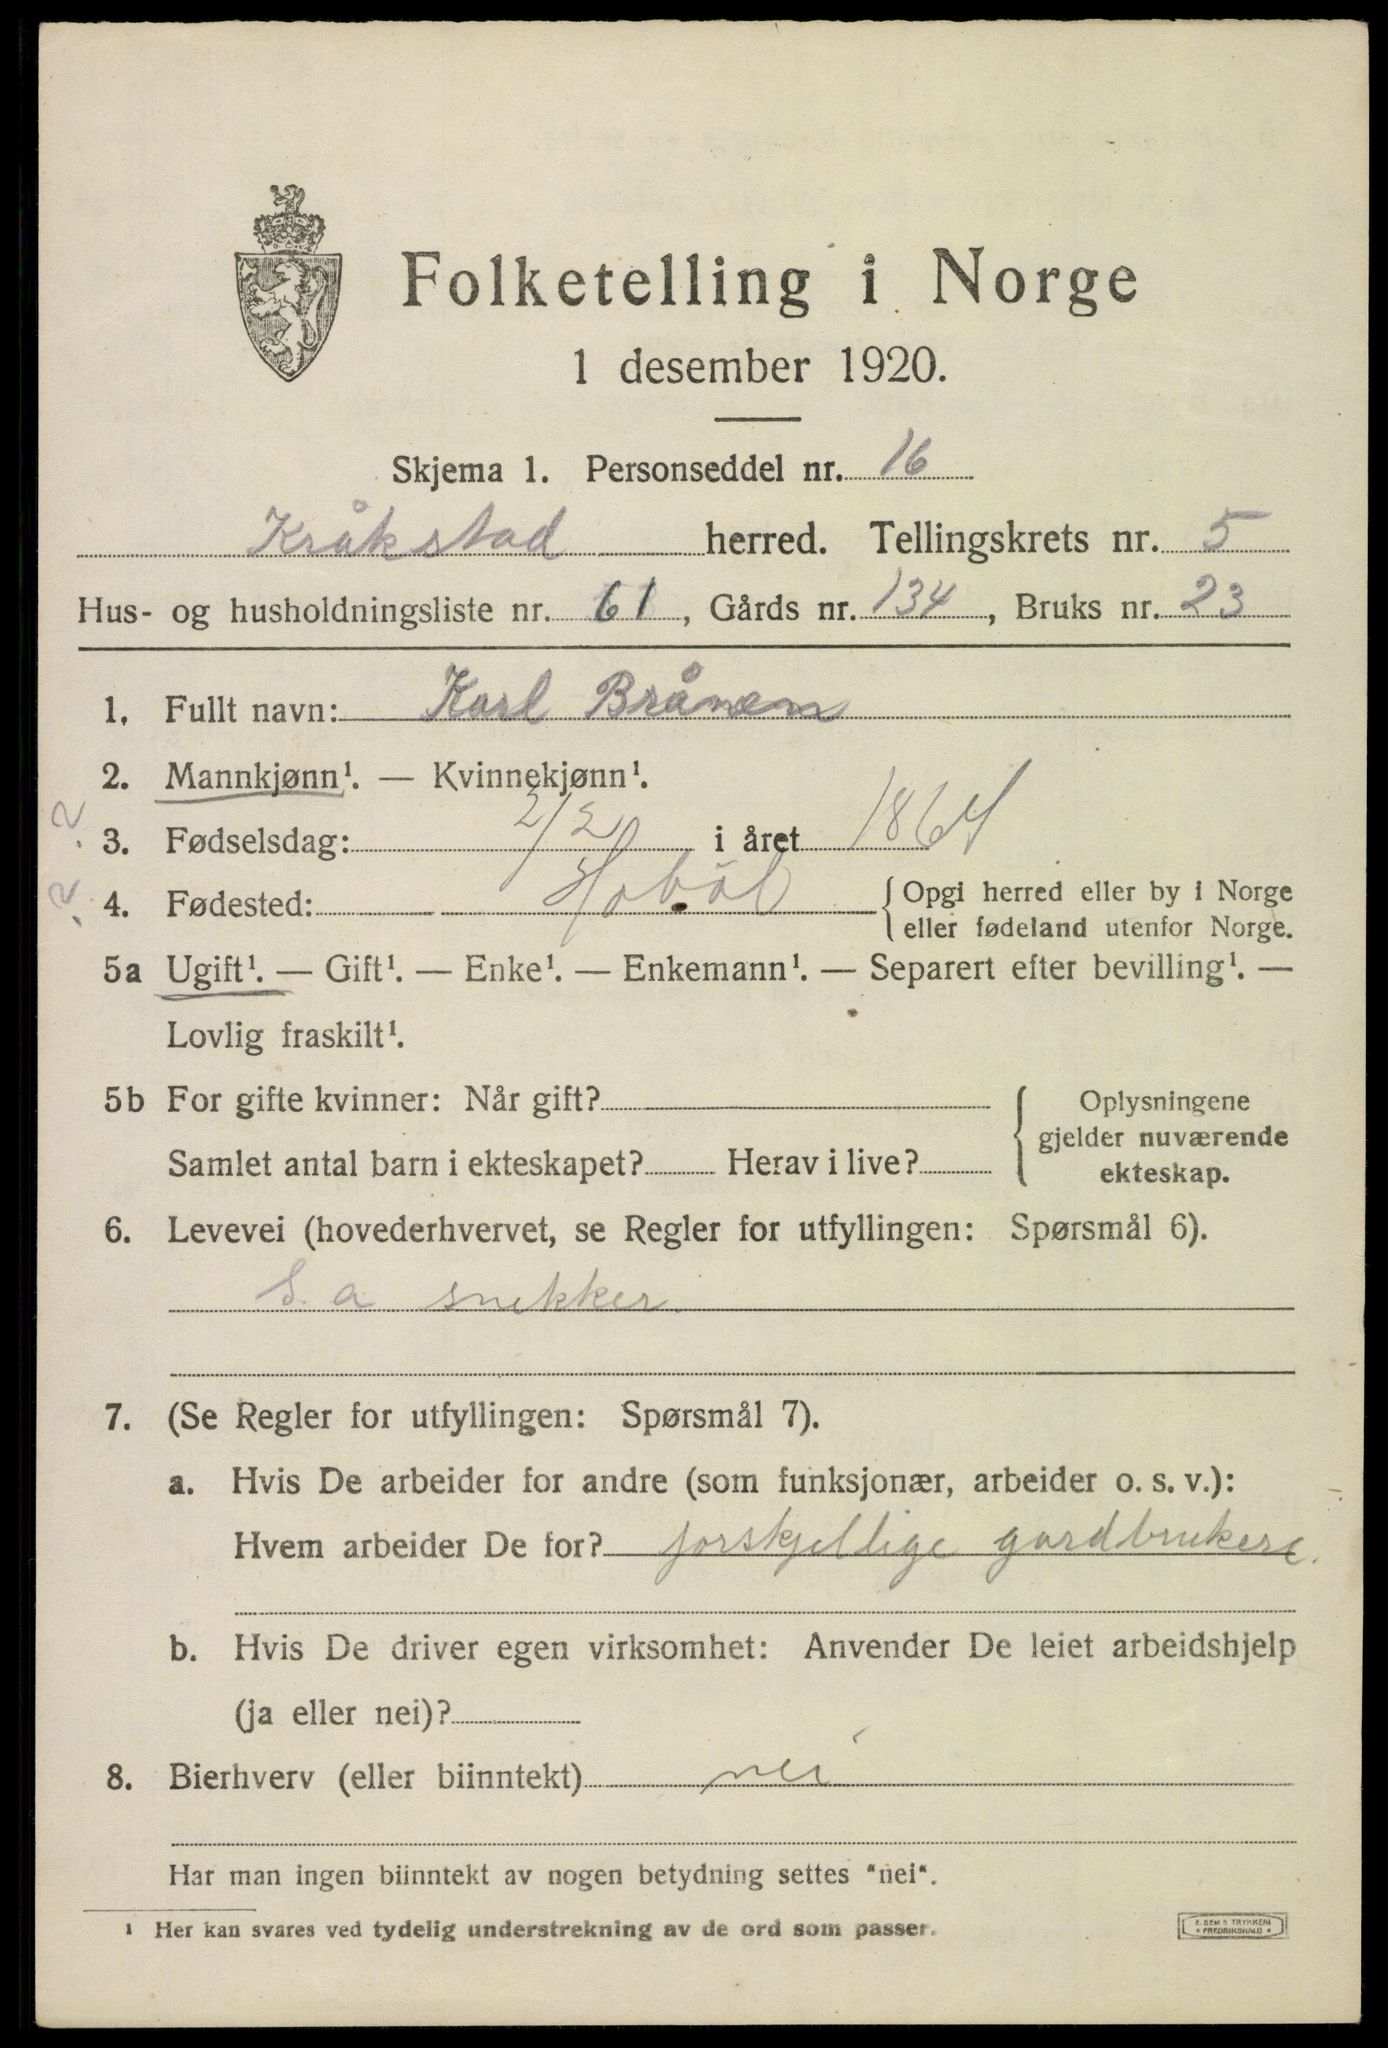 Folketelling i Norge
1 desember 1920.
Skjema 1. Personseddel nr. 16
Kråkstad herred. Tellingskrets nr. 5
Hus- og husholdningsliste nr. 61, Gårds nr. 134, Bruks nr. 23
1. Fullt navn: Karl Brånem
2. Mannkjønn¹. — Kvinnekjønn¹.
? 3. Fødselsdag: 2/2 i året 1864
? 4. Fødested: Hobøl { Opgi herred eller by i Norge
eller fødeland utenfor Norge.
5a Ugift¹. — Gift¹. — Enke¹. — Enkemann¹. — Separert efter bevilling¹. —
Lovlig fraskilt¹.
5b For gifte kvinner: Når gift?
Samlet antal barn i ekteskapet? Herav i live?
Oplysningene
gjelder nuværende
ekteskap.
6. Levevei (hovederhvervet, se Regler for utfyllingen: Spørsmål 6).
S. a snekker.
7. (Se Regler for utfyllingen: Spørsmål 7).
a. Hvis De arbeider for andre (som funksjonær, arbeider o. s. v.):
Hvem arbeider De for? forskjellige gardbrukere.
b. Hvis De driver egen virksomhet: Anvender De leiet arbeidshjelp
(ja eller nei)?
8. Bierhverv (eller biinntekt) nei
Har man ingen biinntekt av nogen betydning settes "nei".
¹ Her kan svares ved tydelig understrekning av de ord som passer.
E. SEM'S TRYKKERI
* FREDRIKSHALD *